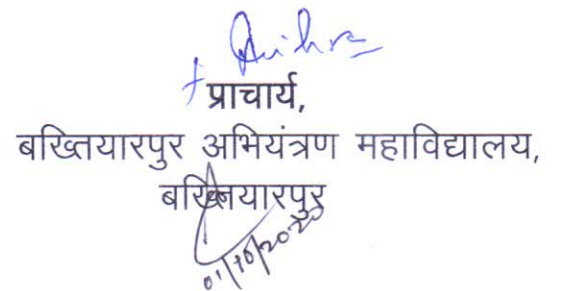 प्राचार्य,
बख्तियारपुर अभियंत्रण महाविद्यालय,
बख्तियारपुर